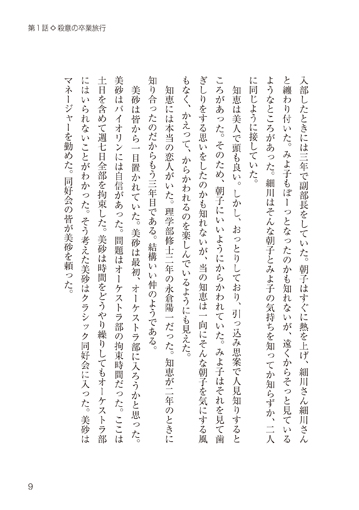 第1話◇殺意の卒業旅行
入部したときには三年で副部長をしていた。朝子はすぐに熱を上げ、細川さん細川さん
と纏わり付いた。みよ子もぼーっとなったのかも知れないが、遠くからそっと見ている
ようなところがあった。細川はそんな朝子とみよ子の気持ちを知ってか知らずか、二人
に同じように接していた。
知恵は美人で頭も良い。しかし、おっとりしており、引っ込み思案で人見知りすると
ころがあった。そのため、朝子にいいようにからかわれていた。みよ子はそれを見て歯
ぎしりをする思いをしたのかも知れないが、当の知恵は一向にそんな朝子を気にする風
もなく、かえって、からかわれるのを楽しんでいるようにも見えた。
知恵には本当の恋人がいた。理学部修士二年の永倉陽一だった。知恵が二年のときに
知り合ったのだからもう三年目である。結構いい仲のようである。
美砂は皆から一目置かれていた。美砂は最初、オーケストラ部に入ろうかと思った。
美砂はバイオリンには自信があった。問題はオーケストラ部の拘束時間だった。ここは
土日を含めて週七日全部を拘束した。美砂は時間をどうやり繰りしてもオーケストラ部
にはいられないことがわかった。そう考えた美砂はクラシック同好会に入った。美砂は
マネージャーを勤めた。同好会の皆が美砂を頼った。
9